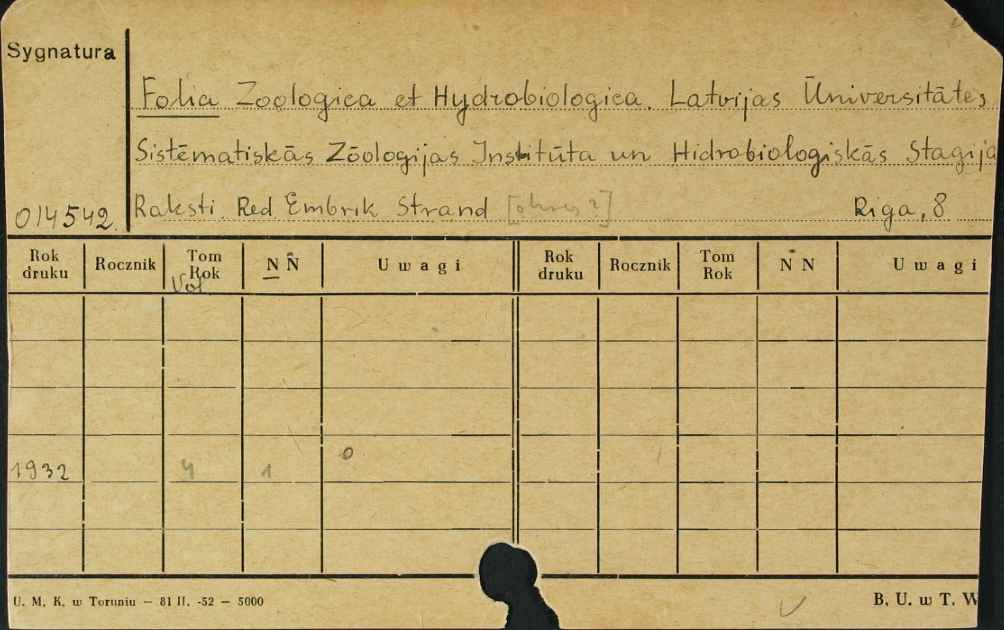 Sygnatura
Folia Zoologica et Hydrobiologica. Latvijas Ūniversitātes
Sistēmatiskās Zōoloģijas Institūta un Hidrobioloģiskās Stacija
014542. Raksti. Red Embrik Strand [okres?] Riga, 8
Rok druku Rocznik Tom Rok Vol. N N Uwagi Rok druku Rocznik Tom Rok N N Uwagi
1932 4 1 0
U. M. K. w Toruniu – 81 II. -52 – 5000 B. U. w T. W